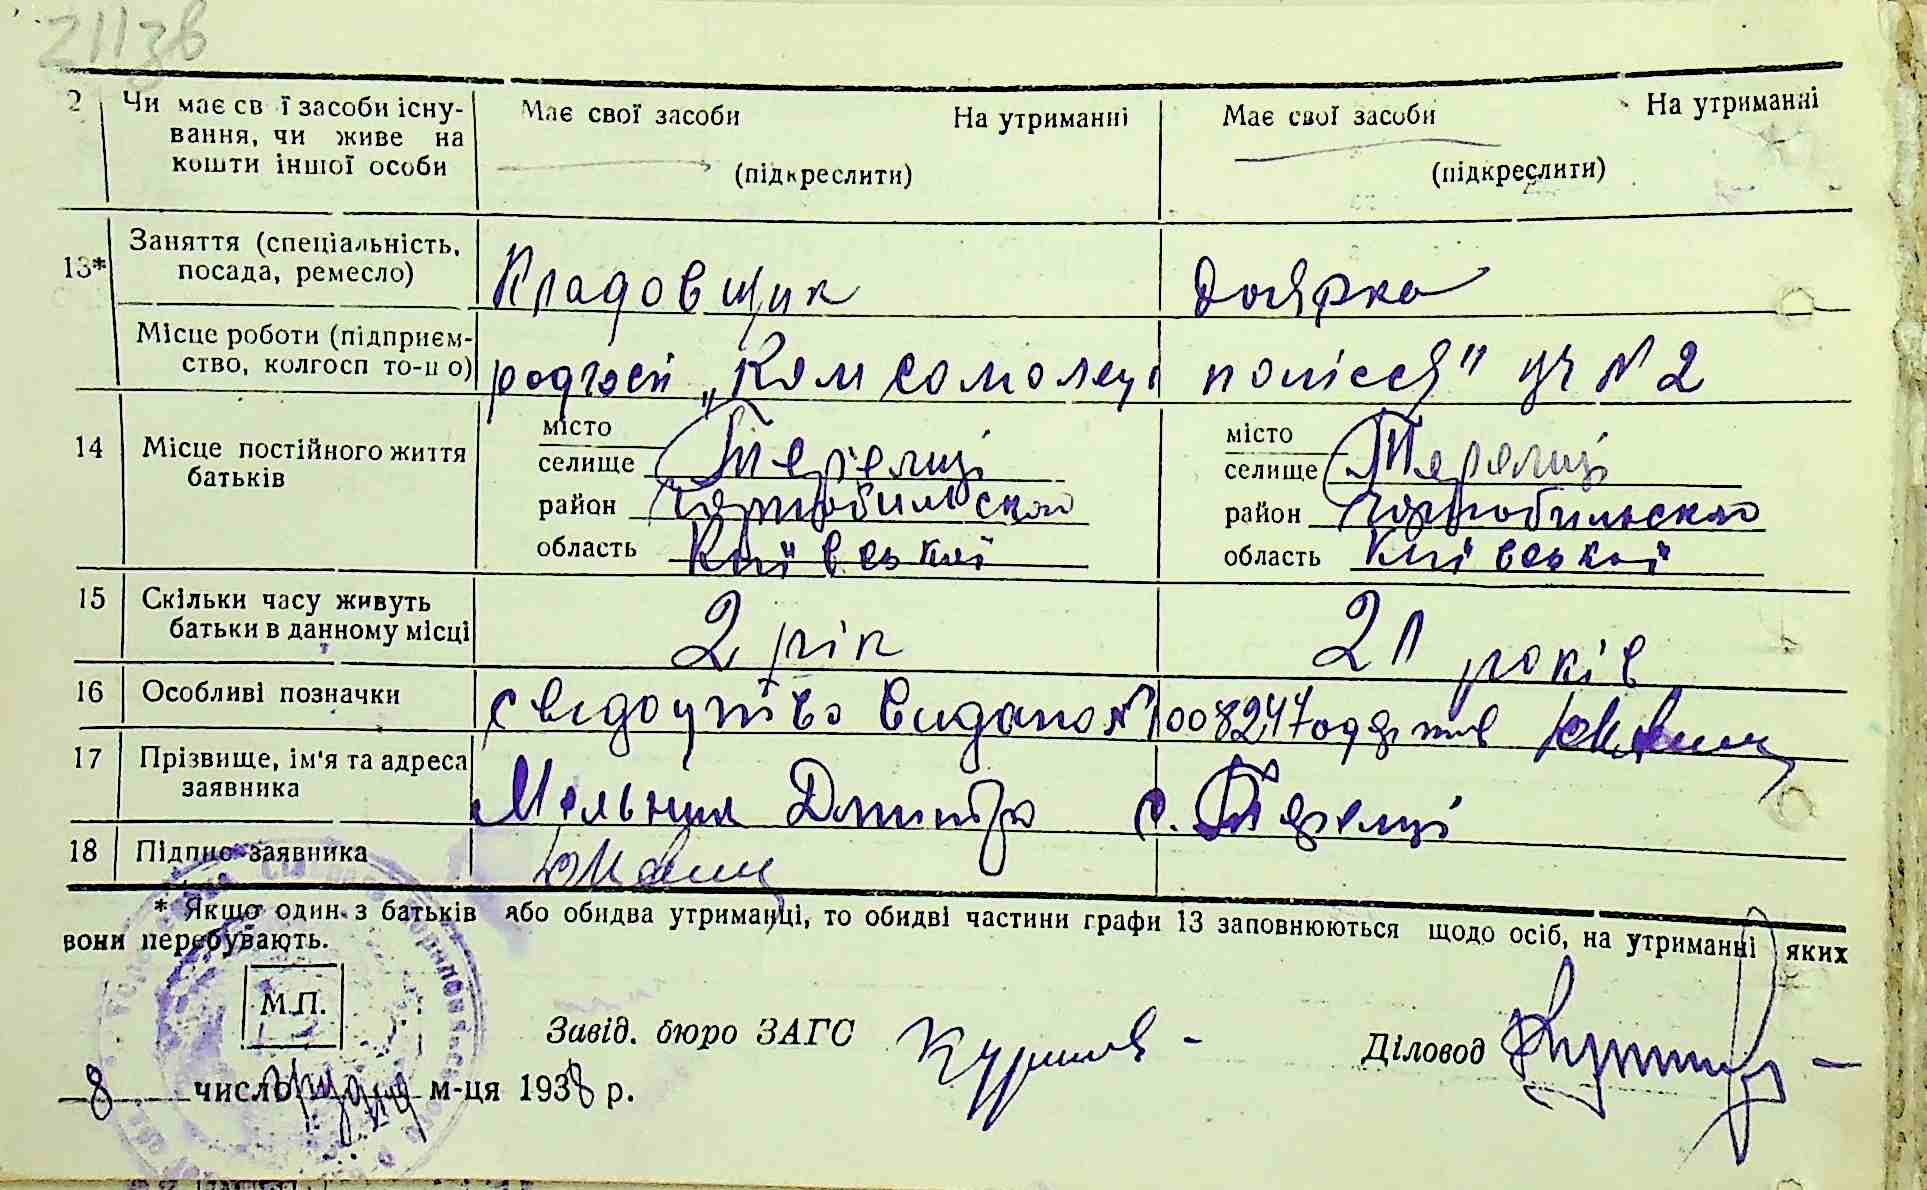 211зв
2 Чи має св ї засоби існу- Має свої засоби На утриманні Має свої засоби На утриманні
вання, чи живе на
кошти іншої особи (підкреслити) (підкреслити)
13* Заняття (спеціальність, посада, ремесло) Кладовщик доярка
Місце роботи (підприєм-
ство, колгосп то-що) радгосп „Комсомолець полісся" уч № 2
14 Місце постійного життя батьків
місто місто
селище Теремці селище Теремці
район Чорнобильского район Чорнобильского
область Київської область Київської
15 Скільки часу живуть
батьки в данному місці 2 рік 21 років
16 Особливі позначки свидоцтво видано № 008247
17 Прізвище, ім'я та адреса
заявника Мельник Дмитро с. Теремці
18 Підпис заявника
* Якщо один з батьків або обидва утриманці, то обидві частини графи 13 заповнюються щодо осіб, на утриманні яких
вони перебувають.
М.П.
Завід. бюро ЗАГС Діловод
8 число грудня м-ця 1938 р.